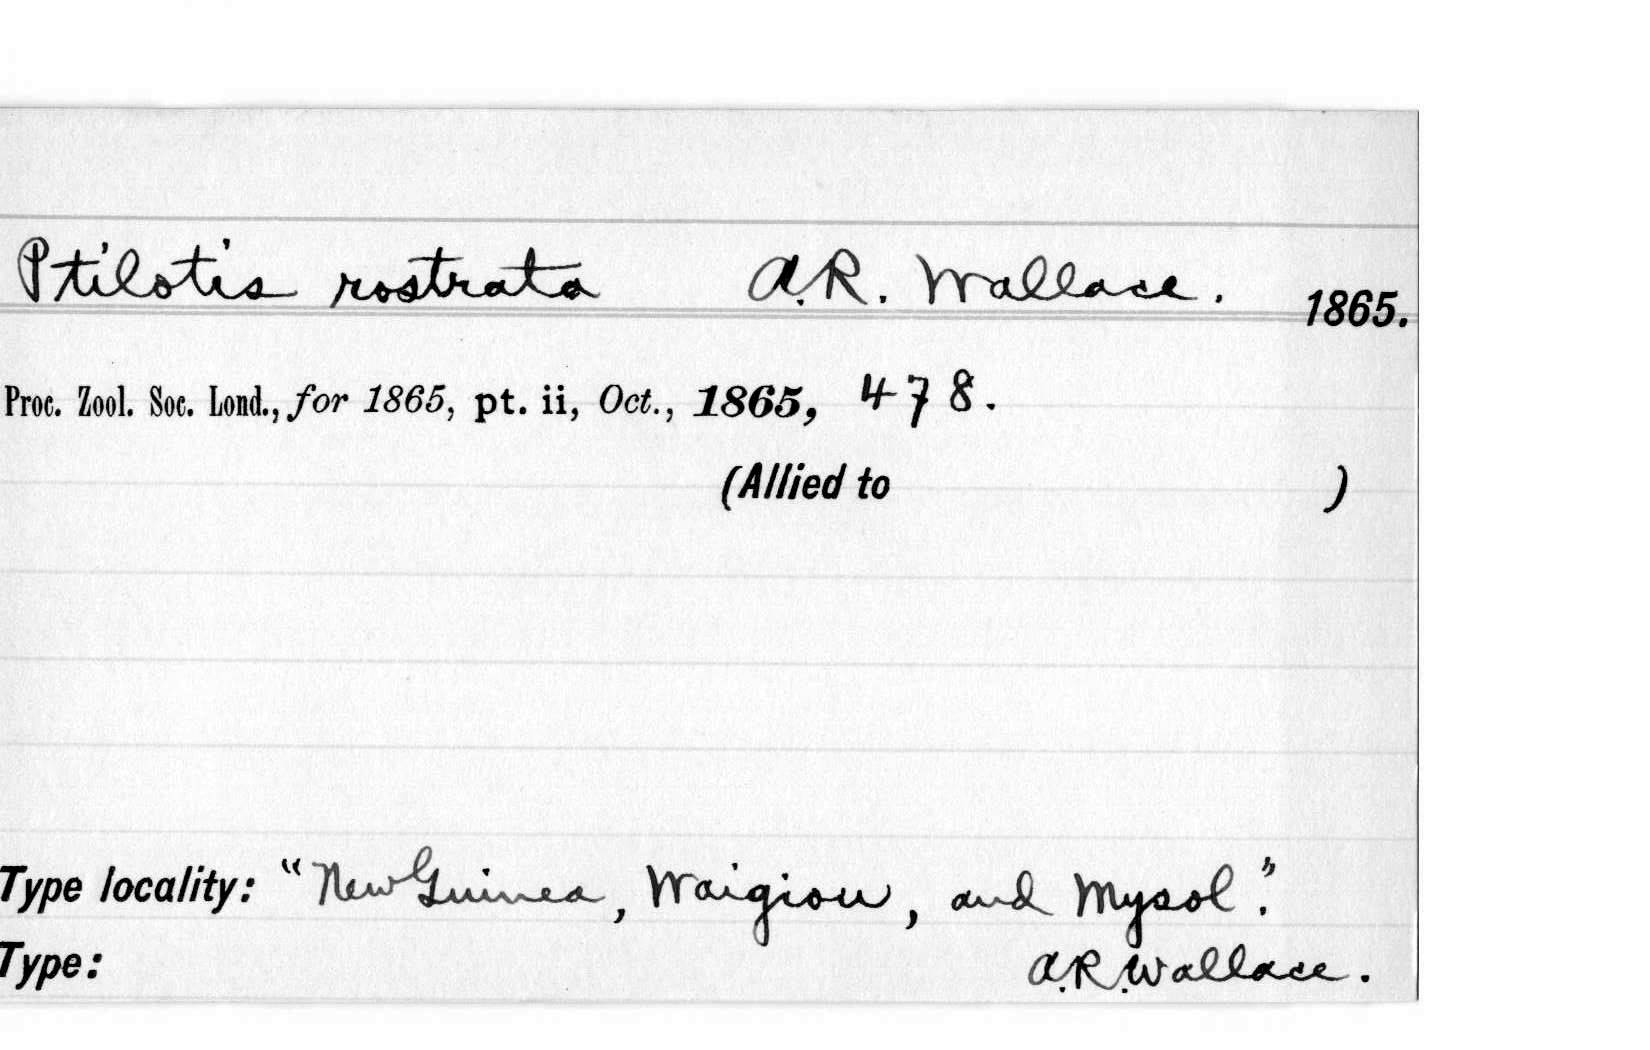 Ptilotis rostrata A.R. Wallace. 1865.
Proc. Zool. Soc. Lond., for 1865, pt. ii, Oct., 1865, 478.
(Allied to )
Type locality: "New Guinea, Waigiou, and Mysol".
Type: A.R. Wallace.